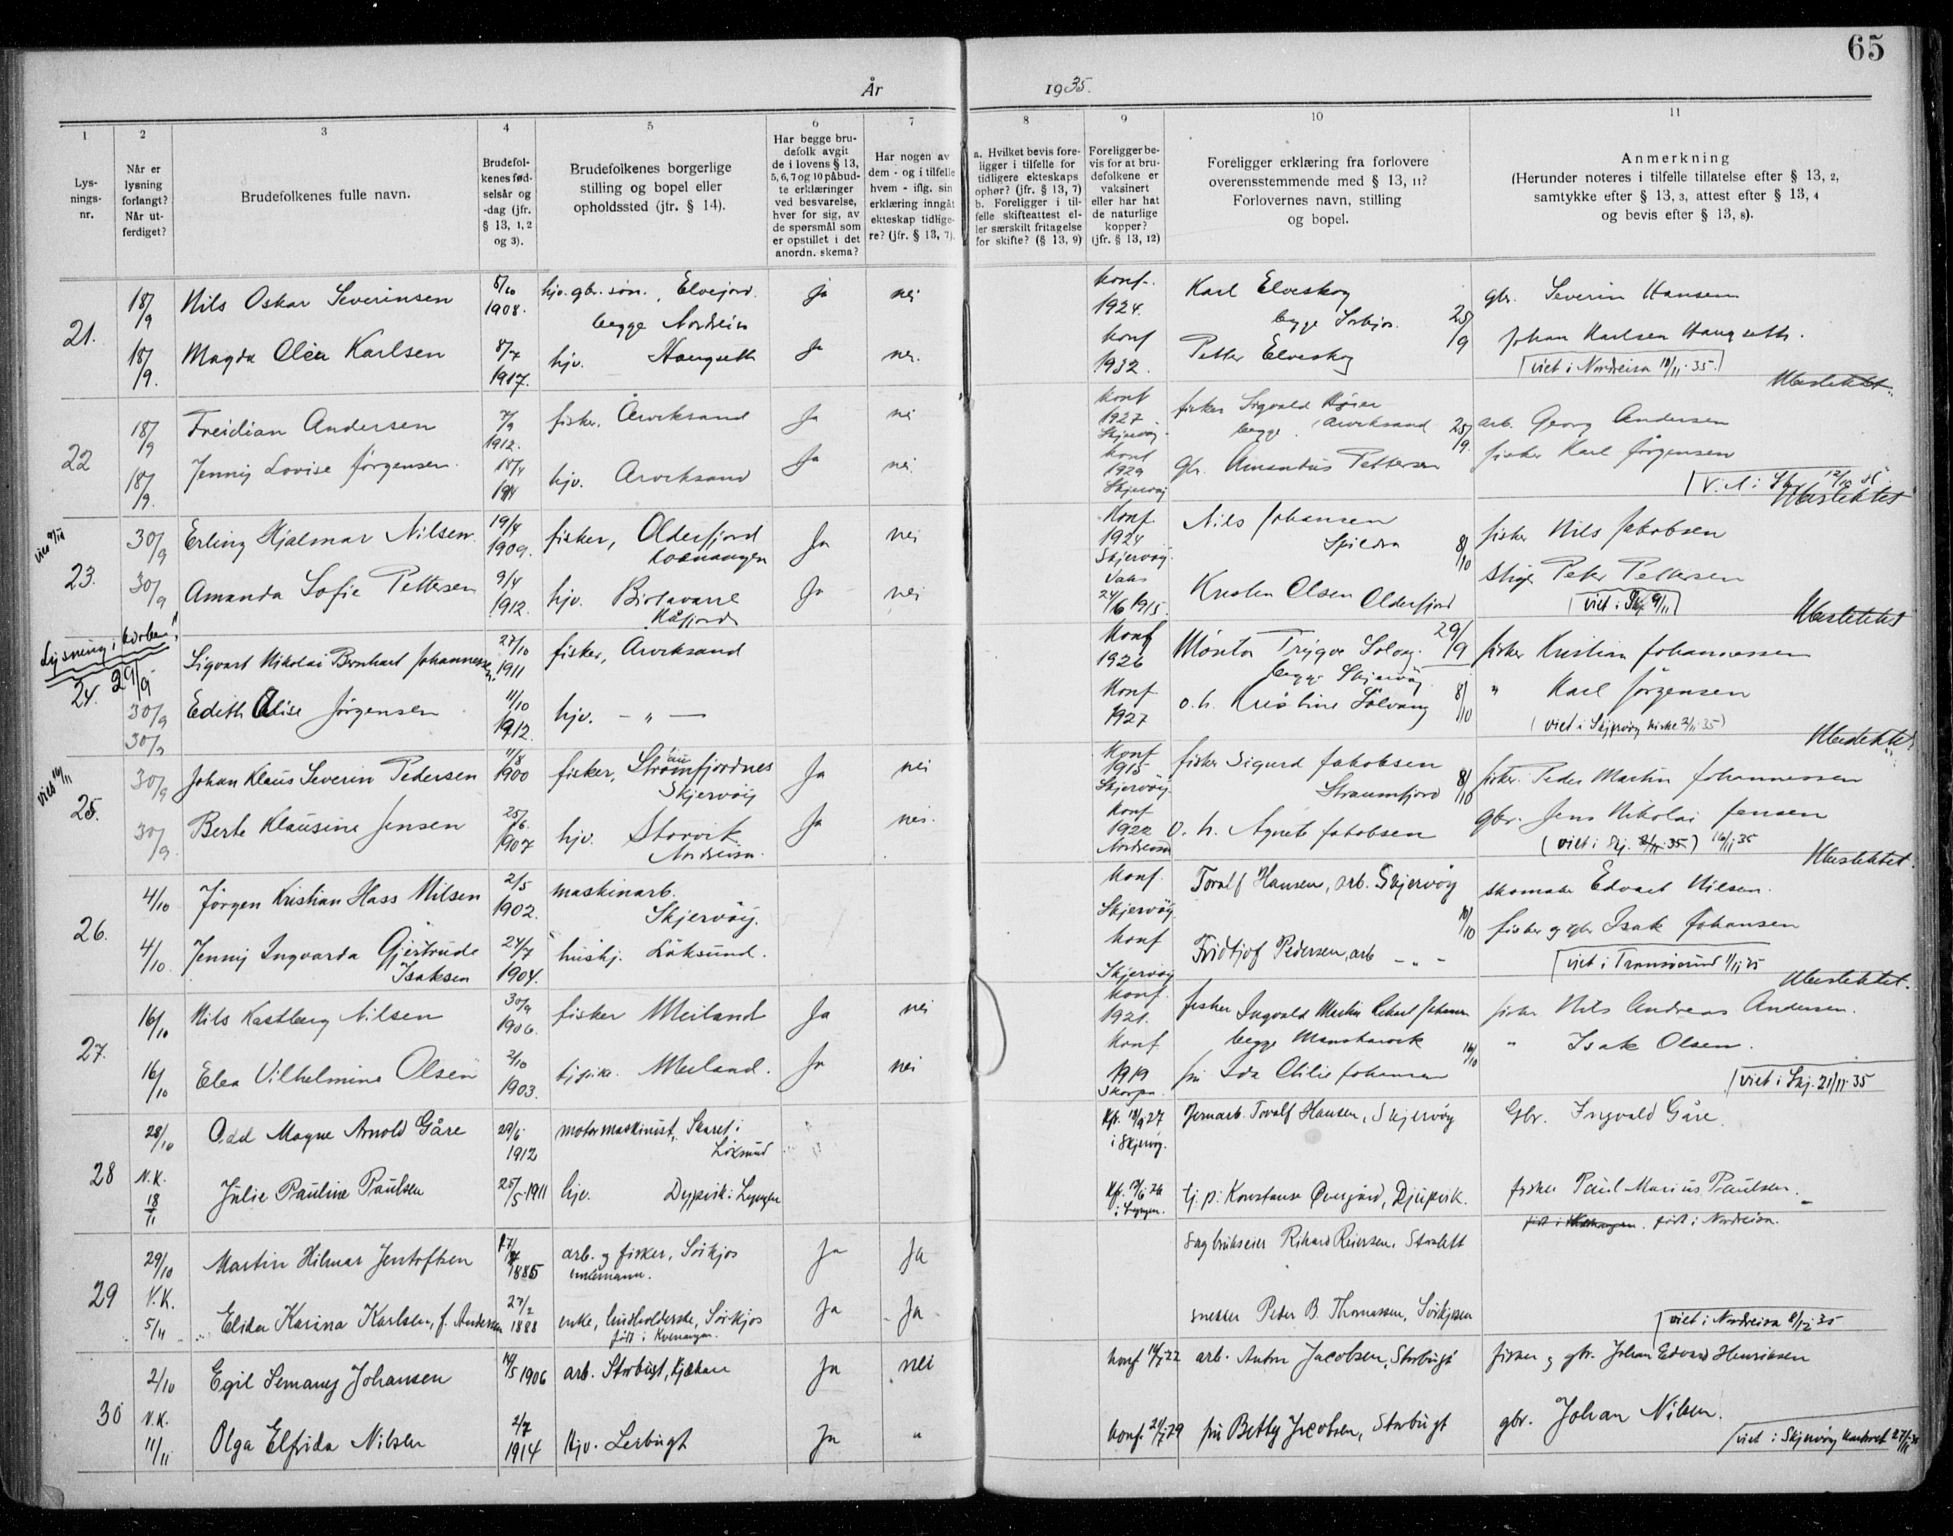 65
År 1935.
1
2
3
4
5
6
7
8
9
10
11
Lysnings-nr.
Når er lysning forlangt? Når utferdiget?
Brudefolkenes fulle navn.
Brudefolkenes fødselsår og -dag (jfr. § 13, 1, 2 og 3).
Brudefolkenes borgerlige stilling og bopel eller opholdssted (jfr. § 14).
Har begge brudefolk avgit de i lovens § 13, 5, 6, 7 og 10 påbudte erklæringer ved besvarelse, hver for sig, av de spørsmål som er opstillet i det anordn. skema?
Har nogen av dem - og i tilfelle hvem - iflg. sin erklæring inngåt ekteskap tidligere? (jfr. § 13, 7).
a. Hvilket bevis foreligger i tilfelle for tidligere ekteskaps ophør? (jfr. § 13, 7) b. Foreligger i tilfelle skifteattest eller særskilt fritagelse for skifte? (§ 13, 9)
Foreligger bevis for at brudefolkene er vaksinert eller har hat de naturlige kopper? (jfr. § 13, 12)
Foreligger erklæring fra forlovere overensstemmende med § 13, 11? Forlovernes navn, stilling og bopel.
Anmerkning (Herunder noteres i tilfelle tillatelse efter § 13, 2, samtykke efter § 13, 3, attest efter § 13, 4 og bevis efter § 13, 8).
21. 18/9 Nils Oskar Severinsen 5/10 1908. hjv. gbr. søn, Elvejord. begge Nordreisa ja nei konf. 1924. Karl Elveskog begge Sørkjos. 25/9 gbr. Severin Hansen
18/9. Magda Olea Karlsen 8/7 1917. hjv. Haugseth Ja nei. konf 1932. Petter Elveskog Johan Karlsen Haugseth.
viet i Nordreisa 10/11 35.
22 18/9 Freidian Andersen 7/9 1912. fisker, Arviksand Ja nei konf 1927 Skjervøy fisker Sigvald begge Arviksand 25/9. arb. Georg Andersen
18/9. Jenny Lovise Jørgensen. 18/4 hjv. Arviksand Ja nei. konf 1929 Skjervøy gbr. Amandus Pettersen fisker Karl Jørgensen
23. 30/9 Erling Hjalmar Nilsen. 19/4 1909. fisker, Olderfjord Kvænangen Ja nei Konf 1924 Skjervøy. Nils Johansen Spildra 8/10 fisker Nils Jakobsen
30/9 Amanda Sofie Pettersen 9/4 1912. hjv. Birtavarre Kåfjord Ja nei Vaks 24/6 1915. Kristen Olsen Olderfjord Peter Pettersen
viet i Skj. 9/11
Lysning i kirken! 29/9
24. 30/9 Sigvart Nikolai Bernhart Johannessen. 27/10 1911 fisker, Arviksand Konf 1926 Trygve Solvg. begge Skjervøy 29/9 fisker Kristian Johannessen
30/9 Edith Alise Jørgensen 11/10 1912. hjv. - " - Konf. 1927 o. h. Kristine Sölvang 8/10 " Karl Jørgensen
(viet i Skjervøy kirke 2/11 35)
25. 30/9 Johan Klaus Severin Pedersen 11/8 1900 fisker, Strømfjordnes Skjervøy Ja nei Konf 1915 Skjervøy. fisker Sigurd Jakobsen Straumfjord 8/10 fisker. Peder Martin Johannessen
30/9. Berte Klausine Jensen 25/6 1907 hjv. Storvik Nordreisa. Ja nei. Konf 1922 Nordreisa o. h. Agnete Jakobsen gbr. Jens Nikolai Jensen
26. 4/10 Jörgen Kristian Hass Nilsen 2/5 1902. maskinarb. Skjervöy. konf. Skjervöy. Toralf Hansen, arb. Skjervöy 10/10 skomaker Edvart Nilsen.
4/10. Jenny Ingvarda Gjertrude Isaksen 27/7 1904. hushj. Löksund. konf Skjervöy Fridtjof Pedersen, arb - " - fisker og gbr Isak Johansen
viet i Tromsøsund 1/11 35
27. 16/10 Nils Kastberg Nilsen 30/9 1906. fisker Meiland Ja nei konf. 1921. fisker Ingvald Martin Johansen begge fisker Nils Andreas Andersen.
16/10 Elea Vilhelmine Olsen 2/10 1903. Meiland. Ja nei Konf 1919 Skorpa fru Ida Otilie Johansen 16/10 " Isak Olsen.
viet i Skj. 21/11 35
28 28/10 Odd Magne Arnold Gåre 29/6 1912 motormaskinist, Skaret i Löksund Kft. 18/9 27 i Skjervøy. Jernarb. Toralf Hansen, Skjervöy Gbr. Ingvald Gåre.
N.K. 18/11 Julie Pauline Paulsen 25/5 1911 hjv. Dypvik i Lyngen i Lyngen. tj. p. Konstanse Övergård, Djupvik. fisker Paul Marius Paulsen.
født i Nordreisa.
29 29/10 Martin Hilmar Jentoftsen 1885 arb. og fisker, Sörkjos enkemann. Ja Ja Sagbrukseier Rikard Reiersen, Storslett
V.K. 5/11 Elida Karina Karlsen, f. Andersen 27/2 1888 enke, husholderske, Sörkjos født i Kvænangen. Ja Ja snekker Peder B. Thomassen, Sörkjosen
viet i Nordreisa 8/12 35
30 2/10 Egil Semmy Johansen 14/5 1906 arb. Storbugt, Kjækan Ja nei konf 14/7 22 arb. Anton Jacobsen, Storbugt fisker og gbr. Johan Edvard Henriksen
V.K. 11/11 Olga Elfrida Nilsen 2/7 1914 Hjv. Lerbugt Ja " konf. 21/7 29 fru Betty Jacobsen, Storbugt gbr. Johan Nilsen.
viet i Skjervøy